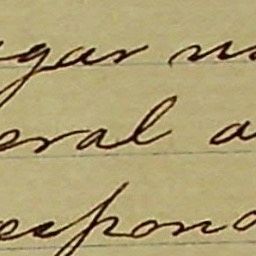 gar
eral a
espond